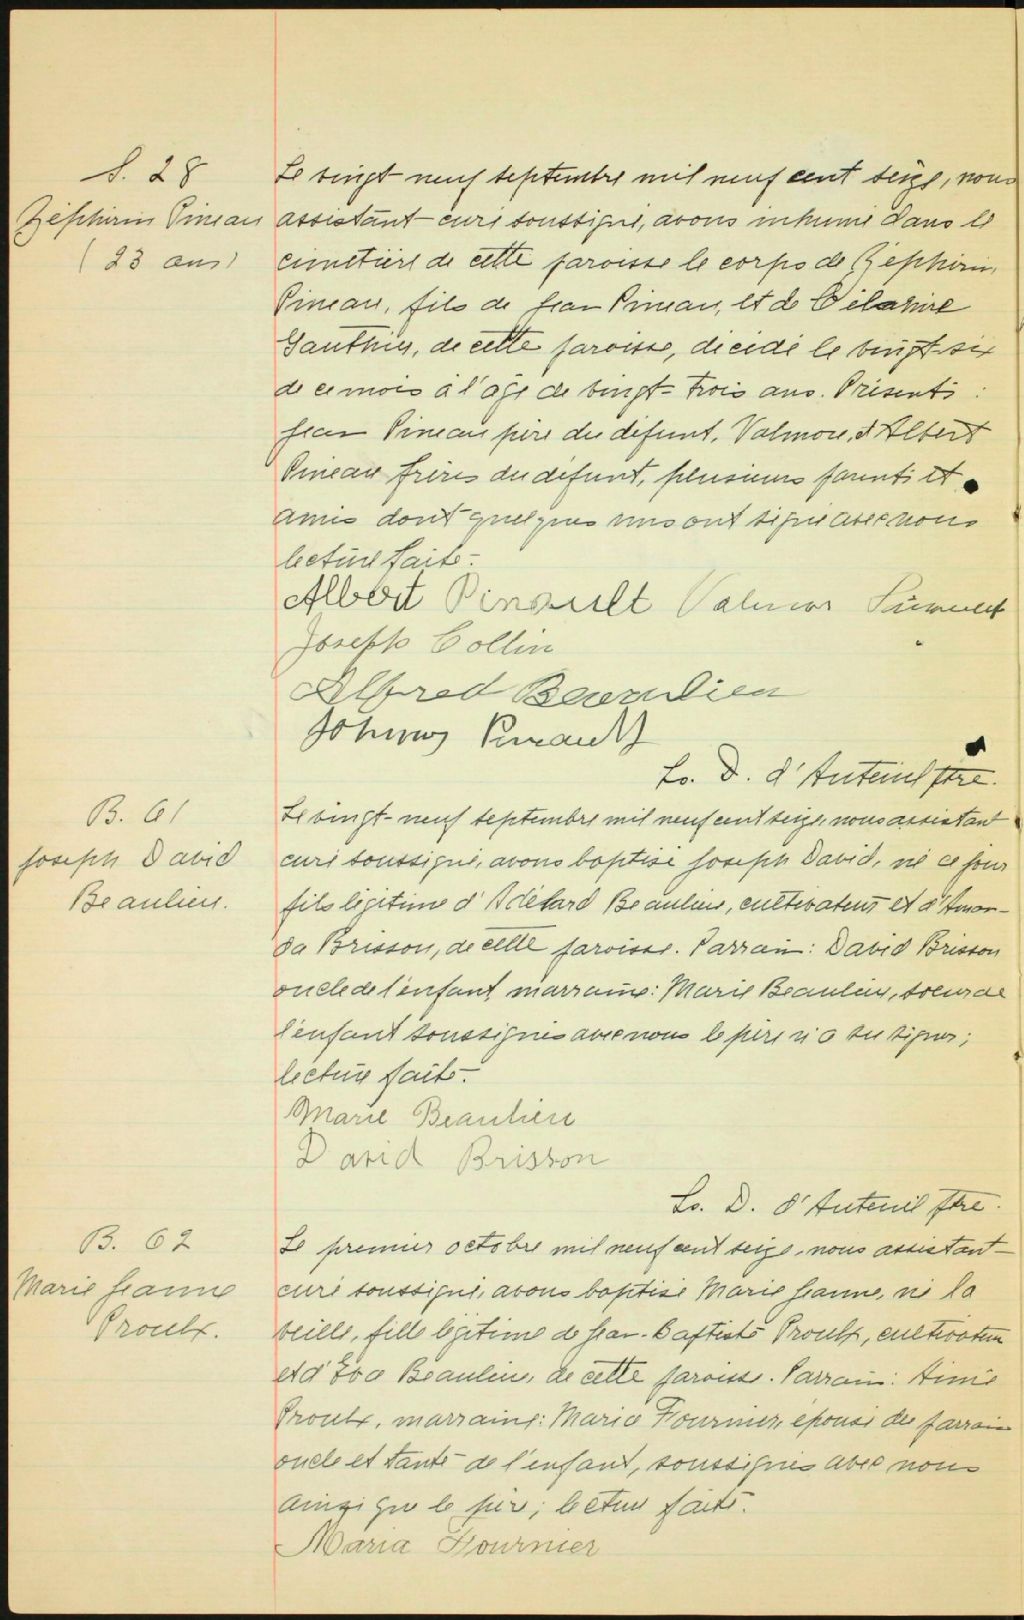 S. 28
Zéphirin Pineau
(23 ans)
Le vingt neuf septembre mil neuf cent seize, nous
assistant curé soussigné, avons inhumé dans le
cimetière de cette paroisse le corps de Zéphirin
Pineau, fils de Jean Pineau, et de Célanire
Gauthier, de cette paroisse, décédé le vingt-six
de ce mois à l'âge de vingt-trois ans. Présents :
Jean Pineau père du défunt, Valmore, et Albert
Pineau frères du défunt, plusieurs parents et
amis dont quelques uns ont signé avec nous
lecture faite.-
Albert Pinault Valmor Pinault
Joseph Collin
Alfred Beaulieu
Johnny Pineault
Ls. D. d'Auteuil ptre.
B. 61
Joseph David
Beaulieu.
Le vingt-neuf septembre mil neuf cent seize, nous assistant
curé soussigné, avons baptisé Joseph David, né ce jour
fils légitime d'Adélard Beaulieu, cultivateur et d'Aman-
da Brisson, de cette paroisse. Parrain: David Brisson
oncle de l'enfant marraine: Marie Beaulieu, soeur de
l'enfant soussignés avec nous le père n'a su signer;
lecture faite.-
Marie Beaulieu
David Brisson
Ls. D. d'Auteuil ptre.
B. 62
Marie Jeanne
Proulx.
Le premier octobre mil neuf cent seize, nous assistant-
curé soussigné, avons baptisé Marie Jeanne, né la
veille, fille légitime de Jean-Baptiste Proulx, cultivateur
et d'Eva Beaulieu, de cette paroisse. Parrain: Aimé
Proulx, marraine: Maria Fournier, épouse du parrain
oncle et tante de l'enfant, soussignés avec nous
ainsi que le père; lecture faite.
Maria Fournier